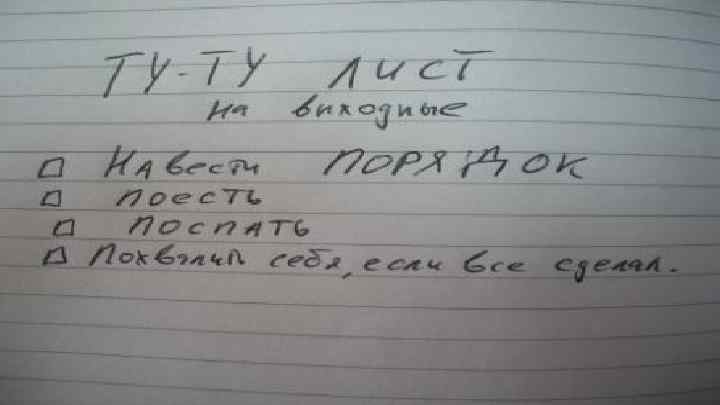 ТУ-ТУ ЛИСТ
на виходные
□ НАвести ПОРЯДОК
□ поесть
□ ПОСПАТЬ
□ Похвали себя, если все сделал.